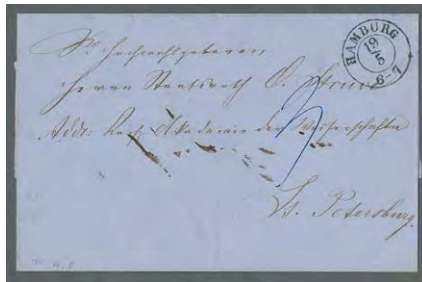 HAMBURG
19
5
6-7
Sr. Hochwohlgeboren
Herrn Staatsrath O. Struve
Addr: Kais. Akademie der Wissenschaften
St. Petersburg.